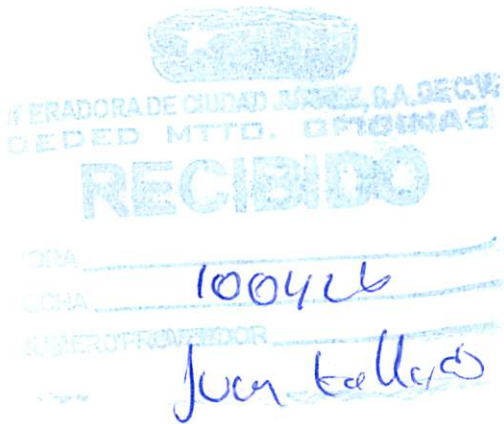 ERADORA DE CIUDAD JUÁREZ, S.A. DE C.V.
CEDED MTTO. OFICINAS
RECIBIDO
ORA
CHA 100426
NUMERO PROVEEDOR
Juan